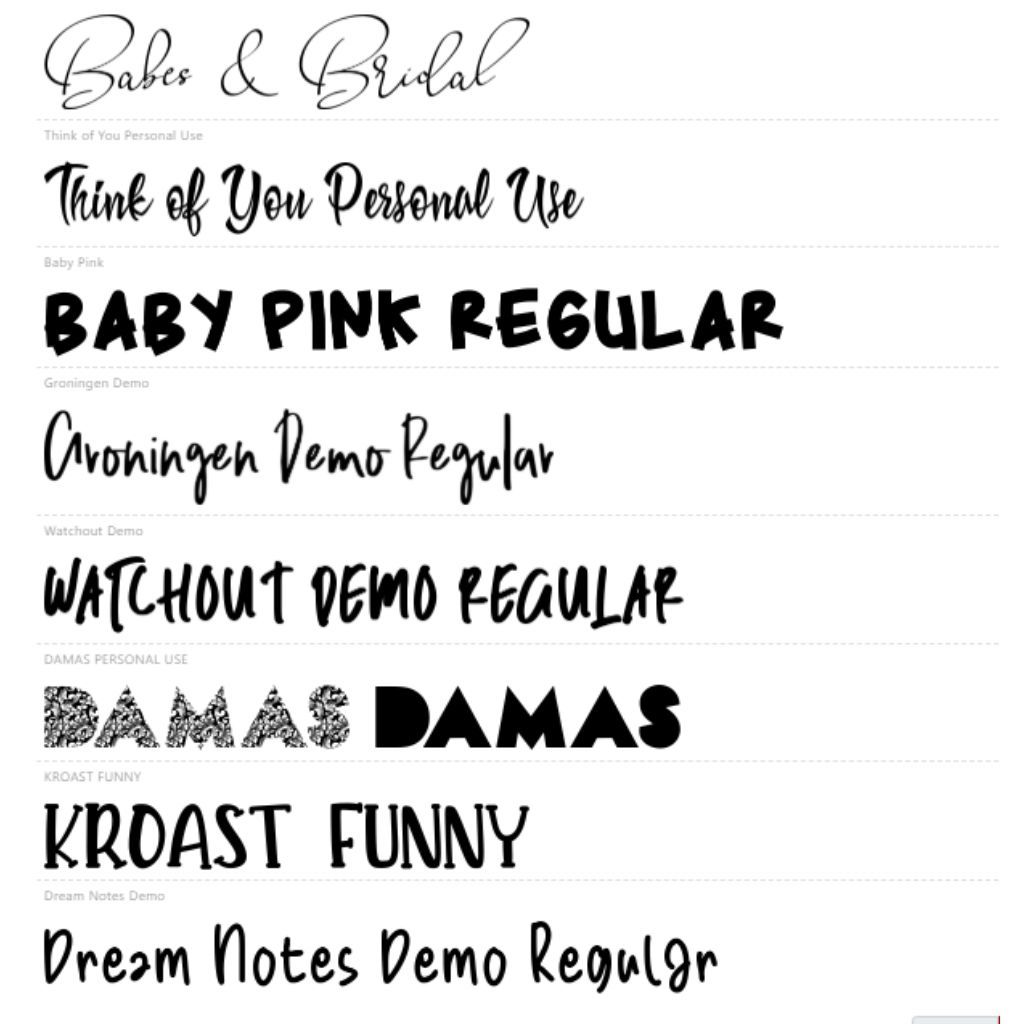 Babes & Bridal
Think of You Personal Use
Think of You Personal Use
Baby Pink
BABY PINK REGULAR
Groningen Demo
Groningen Demo Regular
Watchout Demo
WATCHOUT DEMO REGULAR
DAMAS PERSONAL USE
DAMAS DAMAS
KROAST FUNNY
KROAST FUNNY
Dream Notes Demo
Dream Notes Demo Regular